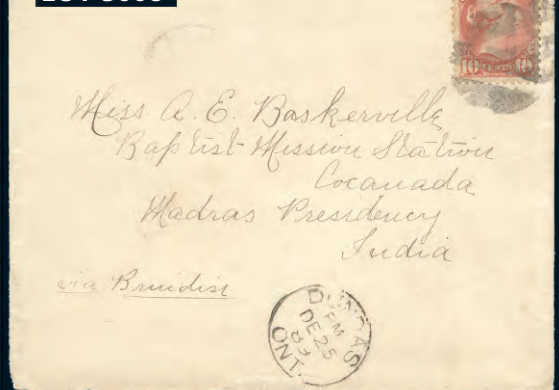 10 CENTS 10
Miss A. E. Baskerville
Baptist Mission Station
Cocanada
Madras Presidency
India
via Brindisi
DUNDAS
PM
DE 25
89
ONT.